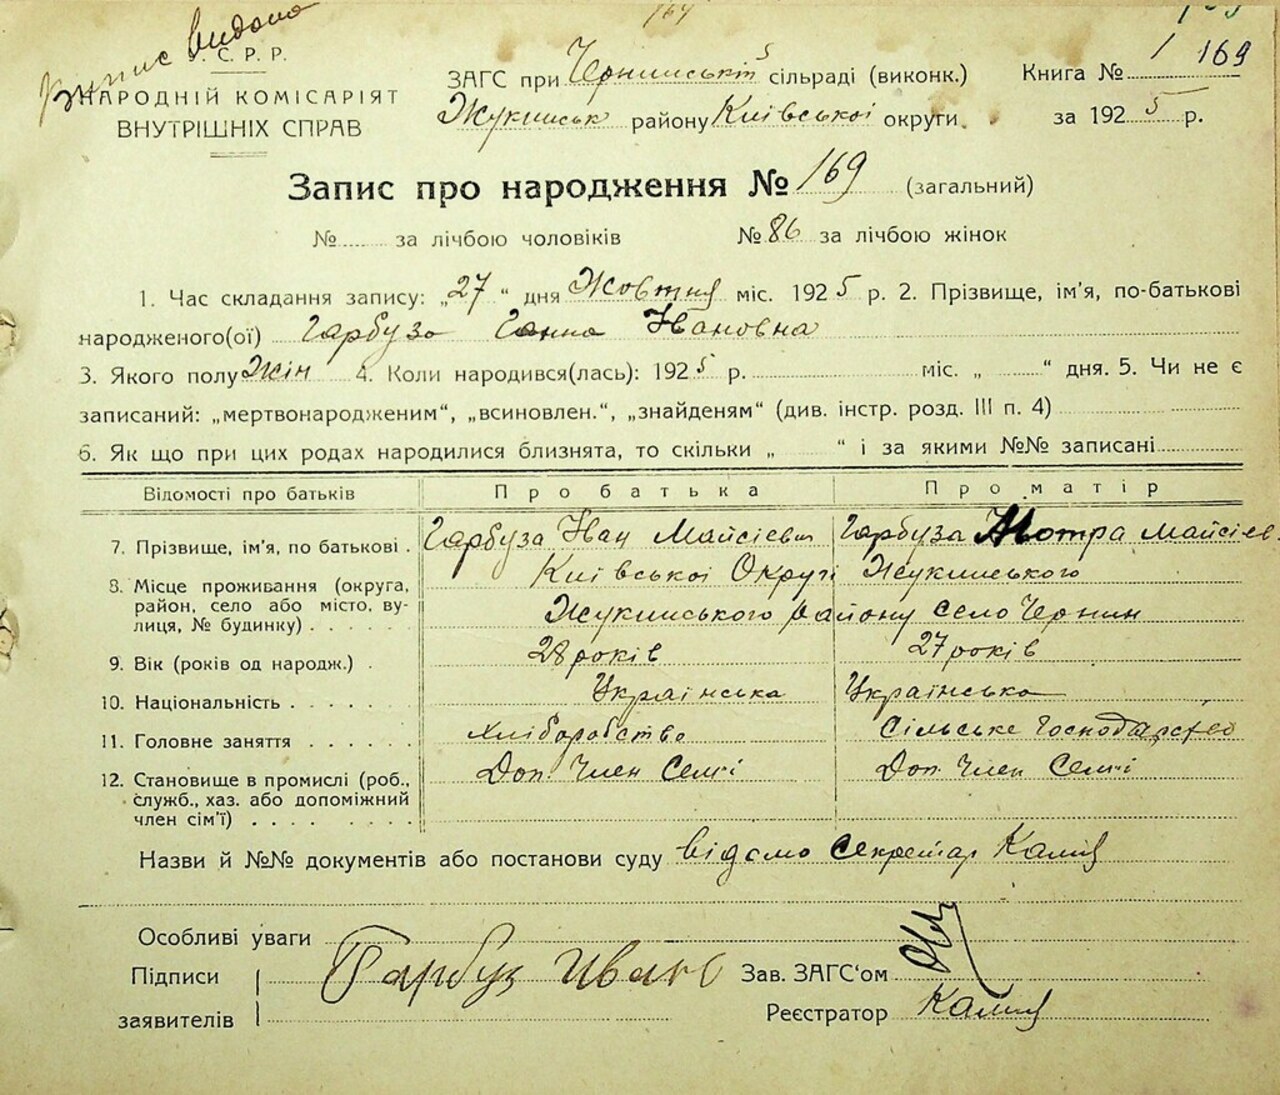 164
Випис видано
С. Р. Р.
НАРОДНІЙ КОМІСАРІЯТ
ВНУТРІШНІХ СПРАВ
ЗАГС при Чернинській сільраді (виконк.)
Книга № 1 169
Жукинськ району Київської округи.
за 1925 р.
Запис про народження № 169 (загальний)
№ за лічбою чоловіків № 86 за лічбою жінок
1. Час складання запису: „27“ дня Жовтня міс. 1925 р. 2. Прізвище, ім'я, по-батькові
народженого(ої) Гарбуза Ганна Івановна
3. Якого полу Жін 4. Коли народився(лась): 1925 р. міс. „ “ дня. 5. Чи не є
записаний: „мертвонародженим“, „всиновлен.“, „знайденям“ (див. інстр. розд. III п. 4)
6. Як що при цих родах народилися близнята, то скільки „ “ і за якими №№ записані
Відомості про батьків Про батька Про матір
7. Прізвище, ім'я, по батькові . Гарбуза Іван Майсієвич Гарбуза Мотра Майсієв
8. Місце проживання (округа, Київської Округі Жукинського
район, село або місто, ву- Жукинського району село Чернин
лиця, № будинку) . . . . . .
9. Вік (років од народж.) . 28 років 27 років
10. Національність . . . . . . Українська Українська
11. Головне заняття . . . . . . Хліборобство Сільське Господарство
12. Становище в промислі (роб., Доп. Член Семї Доп. Член Семї
служб., хаз. або допоміжний
член сім'ї) . . . . . . . .
Назви й №№ документів або постанови суду відомо Секретар
Особливі уваги
Підписи Гарбуз Иван Зав. ЗАГС'ом
заявителів Реєстратор